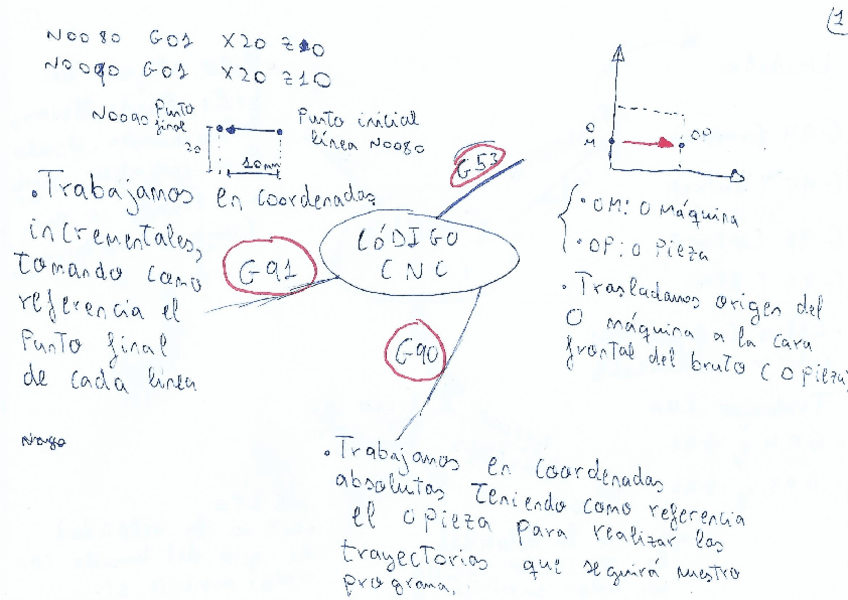 1
N0080 G01 X20 Z0
N0090 G01 X20 Z10
N0090 Punto
final
Punto inicial
línea N0080
20
10mm
G53
O
M
OP
• OM: O Máquina
• OP: O Pieza
• Trasladamos origen del
O máquina a la cara
frontal del bruto (O Pieza)
CÓDIGO
CNC
G91
• Trabajamos en coordenadas
incrementales,
tomando como
referencia el
Punto final
de cada línea
G90
• Trabajamos en coordenadas
absolutas teniendo como referencia
el O pieza para realizar las
trayectorias que seguirá nuestro
programa.